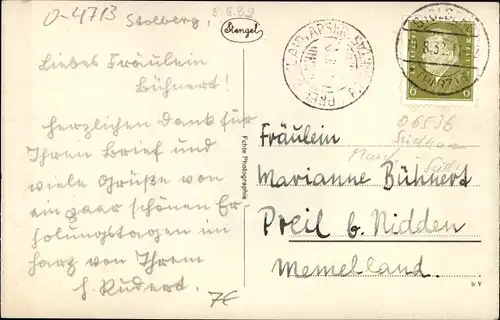 O-4713
Stolberg,
8.8.32
Stengel
Liebes Fräulein
Bühnert!
Herzlichen Dank für
Ihren Brief und
viele Grüße von
ein paar schönen Er-
holungstagen im
Harz von Ihrem
H. Rudert.
7€
Echte Photographie
STOLBERG
8.32
(HARZ)
6 6
06536
Fräulein
Marianne Bühnert
Preil b. Nidden
Memelland.